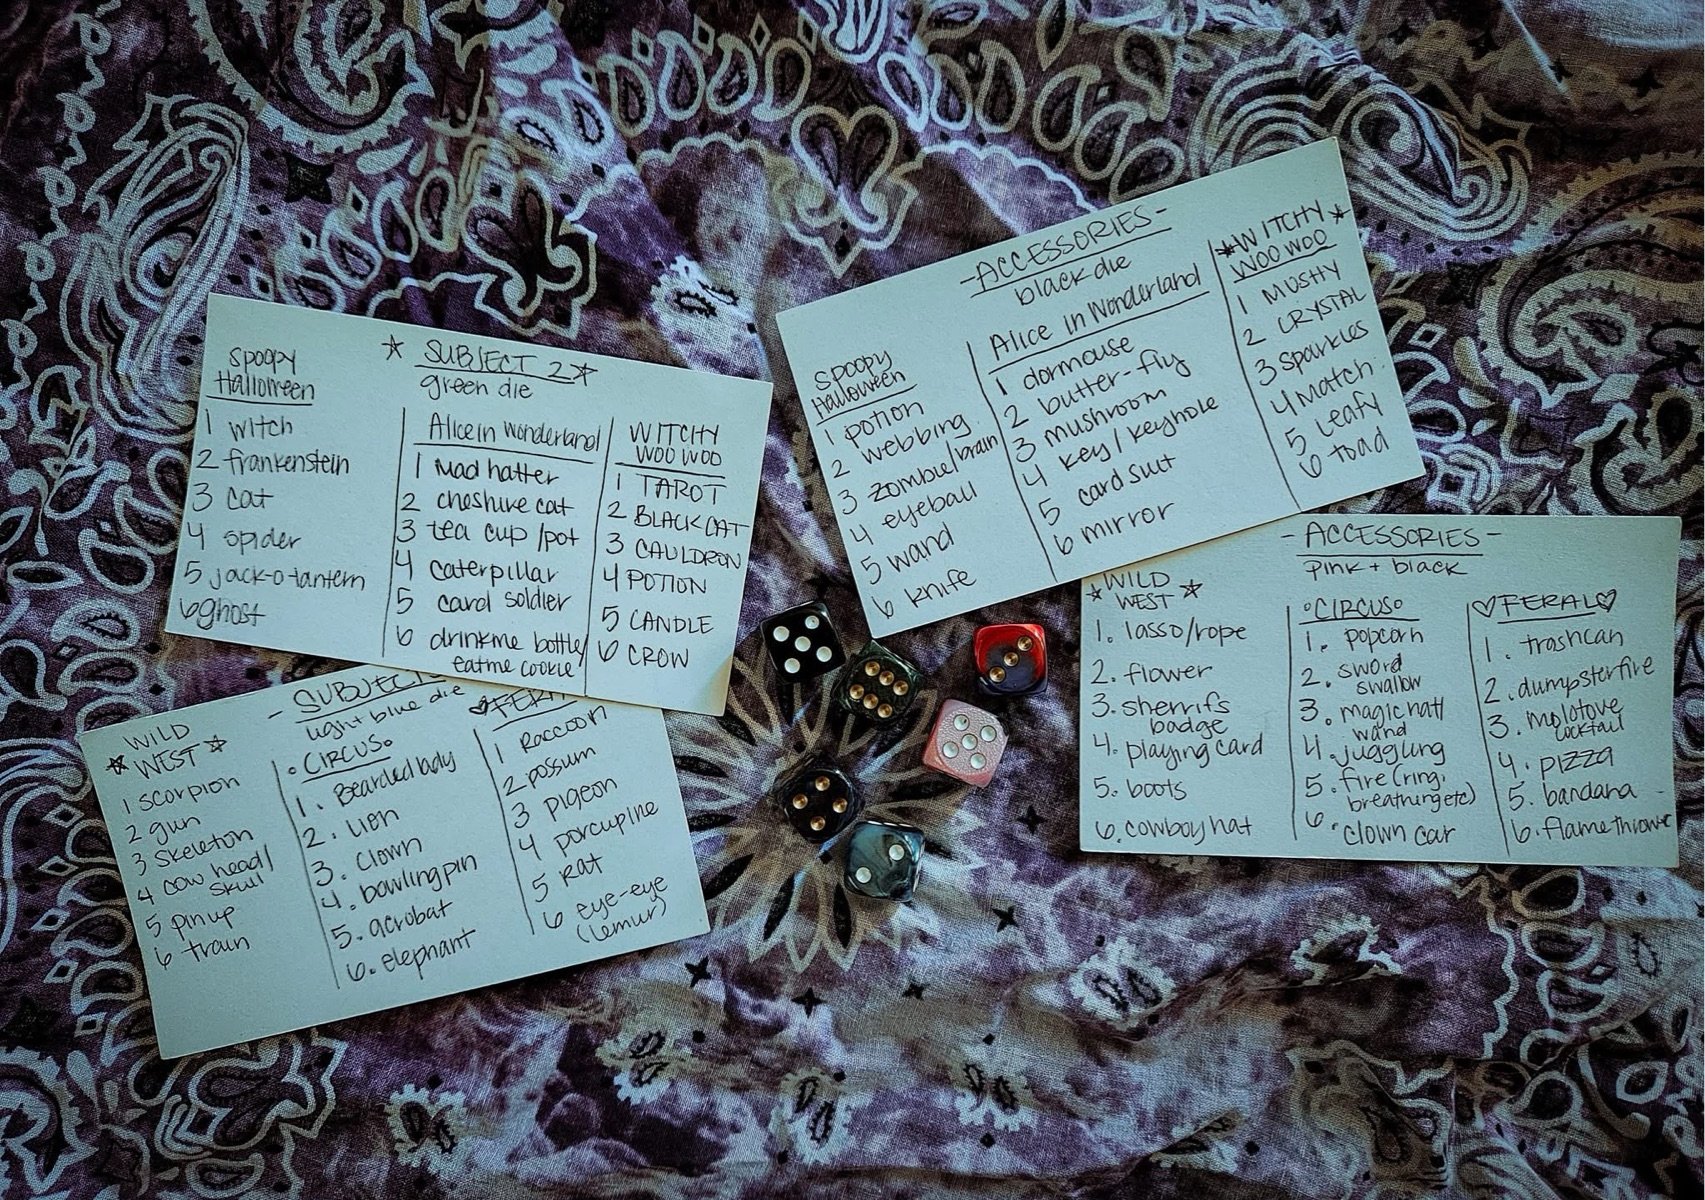 ☆ SUBJECT 2 ☆
green die
Spoopy
Halloween
1 witch
2 frankenstein
3 cat
4 spider
5 jack-o-lantern
6 ghost
Alice in Wonderland
1 Mad hatter
2 cheshire cat
3 tea cup/pot
4 caterpillar
5 card soldier
6 drinkme bottle/
eatme cookie
WITCHY
WOO WOO
1 TAROT
2 BLACK CAT
3 CAULDRON
4 POTION
5 CANDLE
6 CROW
-ACCESSORIES-
black die
Spoopy
Halloween
1 potion
2 webbing
3 zombie/brain
4 eyeball
5 wand
6 knife
Alice In Wonderland
1 dormouse
2 butter-fly
3 mushroom
4 key/keyhole
5 card suit
6 mirror
☆WITCHY☆
WOO WOO
1 MUSHY
2 CRYSTAL
3 Sparkles
4 Match
5 Leafy
6 toad
- SUBJECT
light blue die
WILD
☆ WEST ☆
1 scorpion
2 gun
3 skeleton
4 cow head/
skull
5 pinup
6 train
∘CIRCUS∘
1. Bearded lady
2. Lion
3. Clown
4. bowling pin
5. acrobat
6. elephant
♡FERAL
1 Raccoon
2 possum
3 pigeon
4 porcupine
5 Rat
6 eye-eye
(lemur)
- ACCESSORIES -
pink + black
☆ WILD
WEST ☆
1. lasso/rope
2. flower
3. sherrifs
badge
4. playing card
5. boots
6. cowboy hat
∘CIRCUS∘
1. popcorn
2. sword
swallow
3. magic hat/
wand
4. juggling
5. fire (ring,
breathing etc)
6. clown car
♡FERAL♡
1. trashcan
2. dumpsterfire
3. molotove
cocktail
4. pizza
5. bandana
6. flamethrower